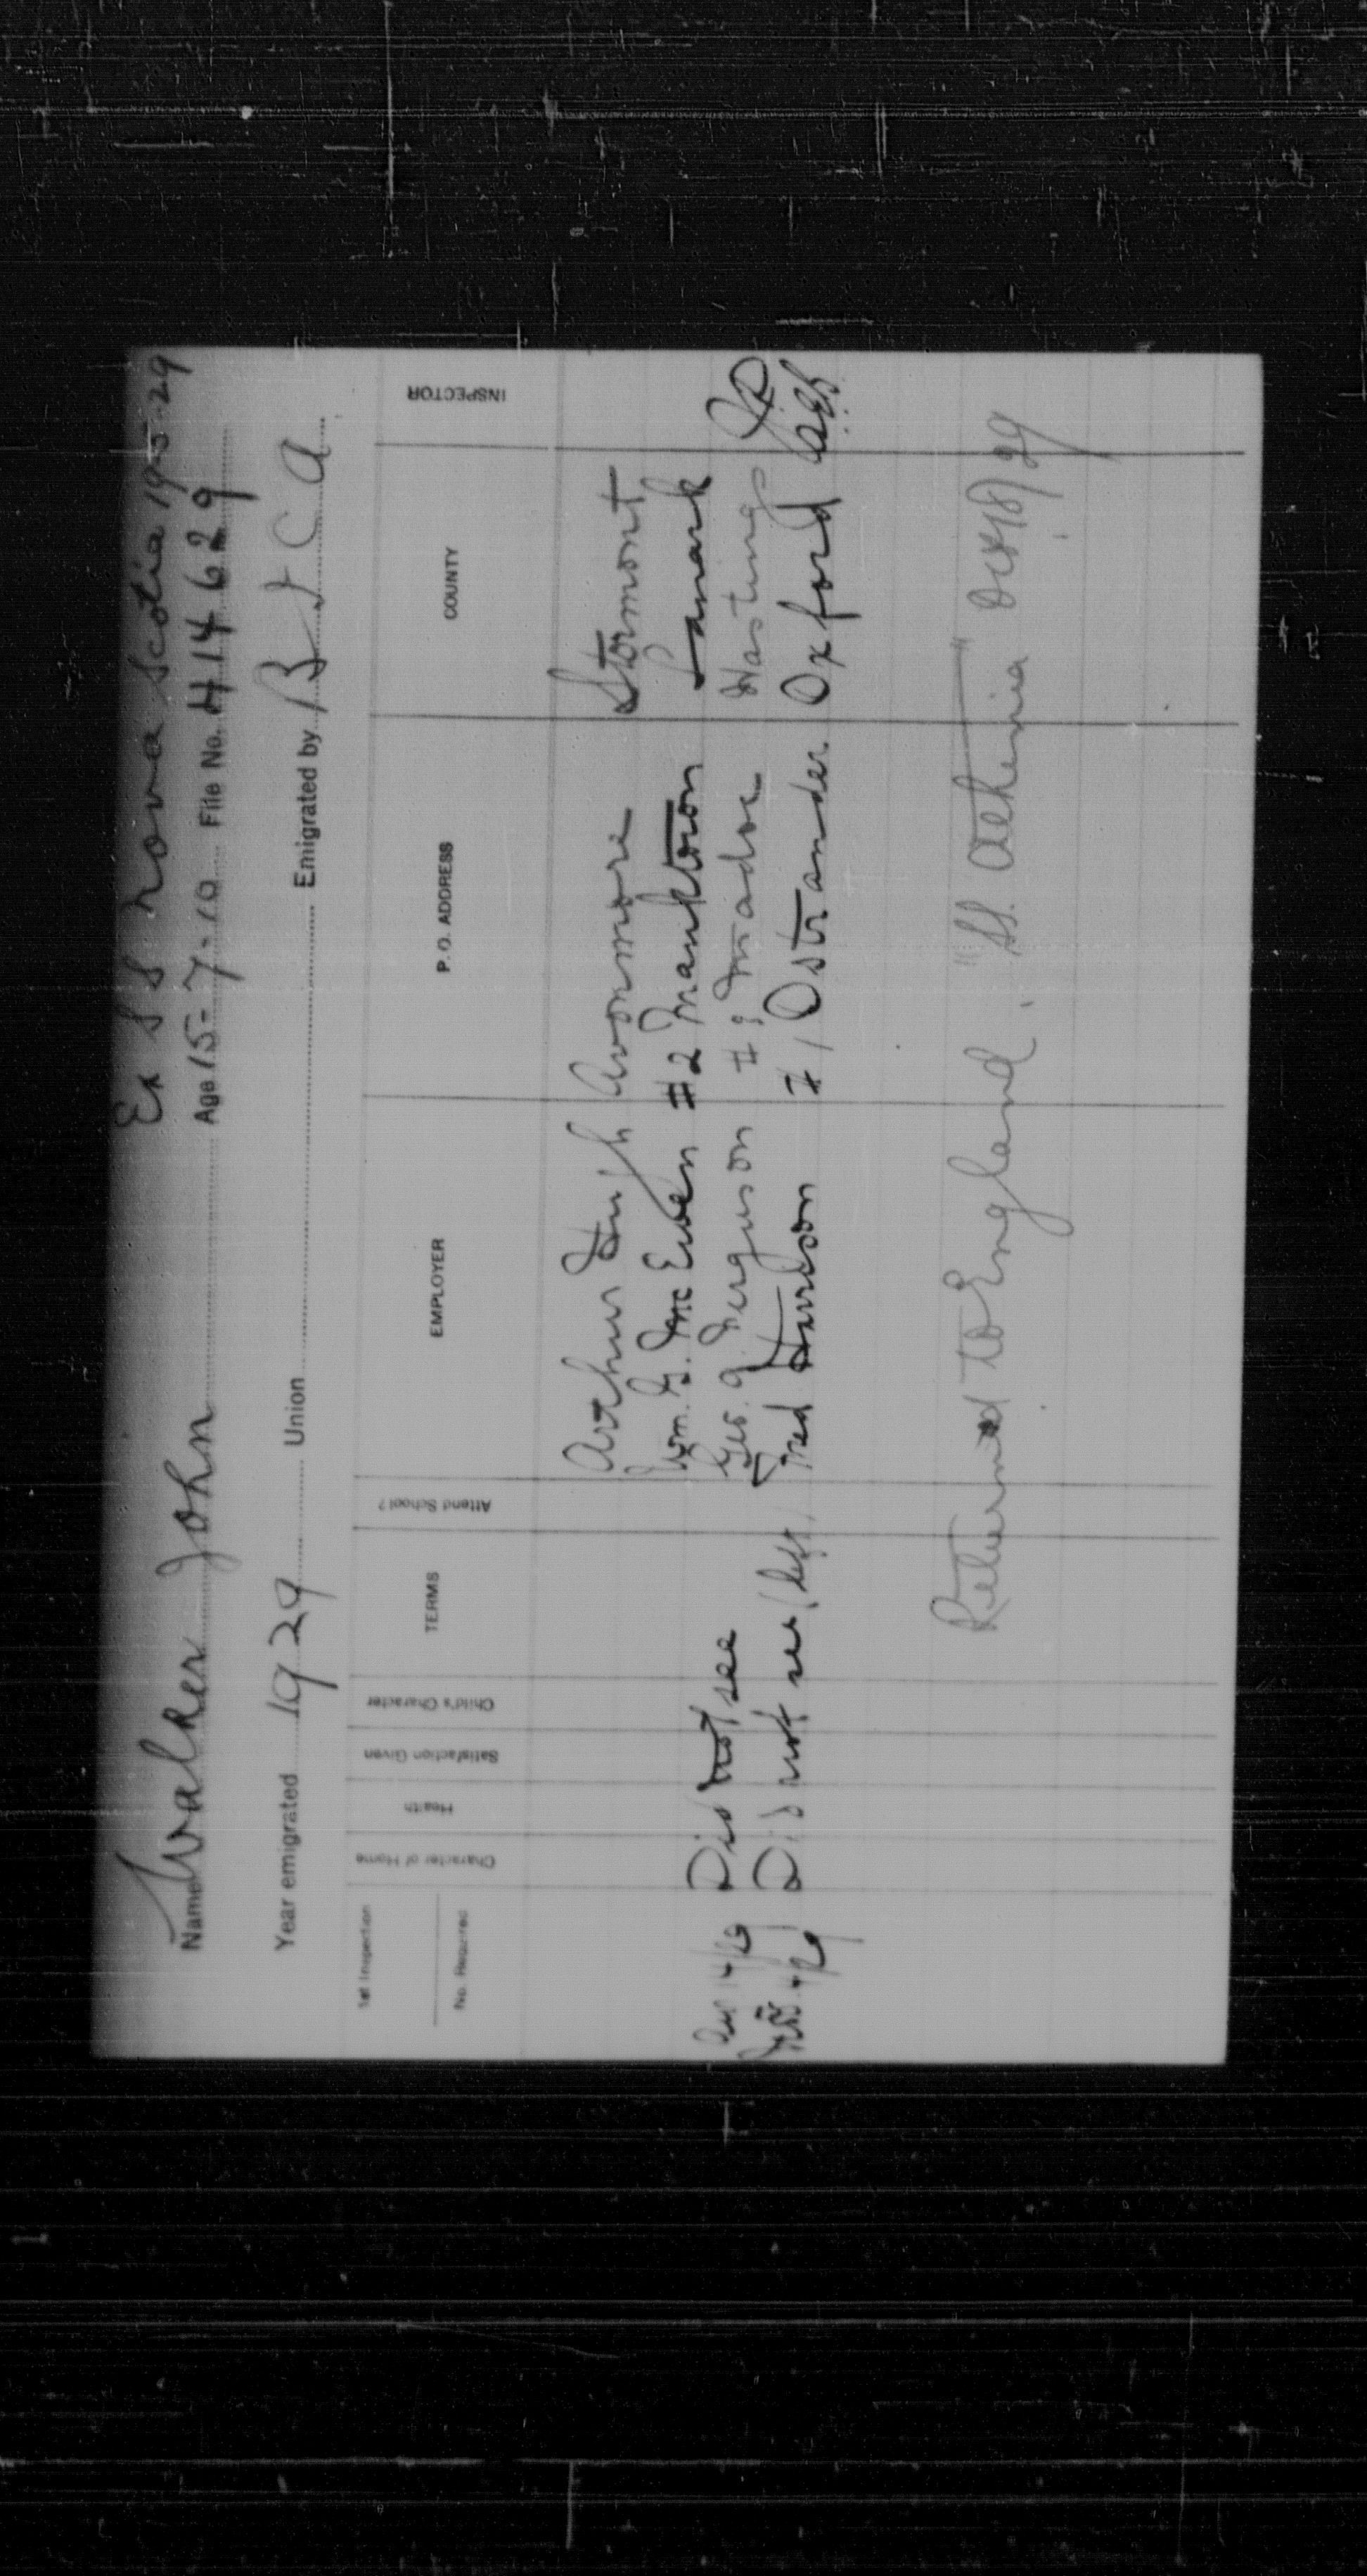 Ex S S Nova Scotia 19-5-29
Name Walker John Age 15-7-10 File No. 414629
Year emigrated 1929 Union Emigrated by B I C A
1st Inspection
No. Required
Character of Home Health Satisfaction Given Child's Character TERMS Attend School? EMPLOYER P. O. ADDRESS COUNTY INSPECTOR
Arthur Avonmore Stormont
Wm. G. McEwen #2 Franktown Lanark
Did not see Geo. A. Ferguson # Madoc Hastings
Did not see (left) Fred Harrison #1 Ostrander Oxford
Returned to England, "SS. Athenia"